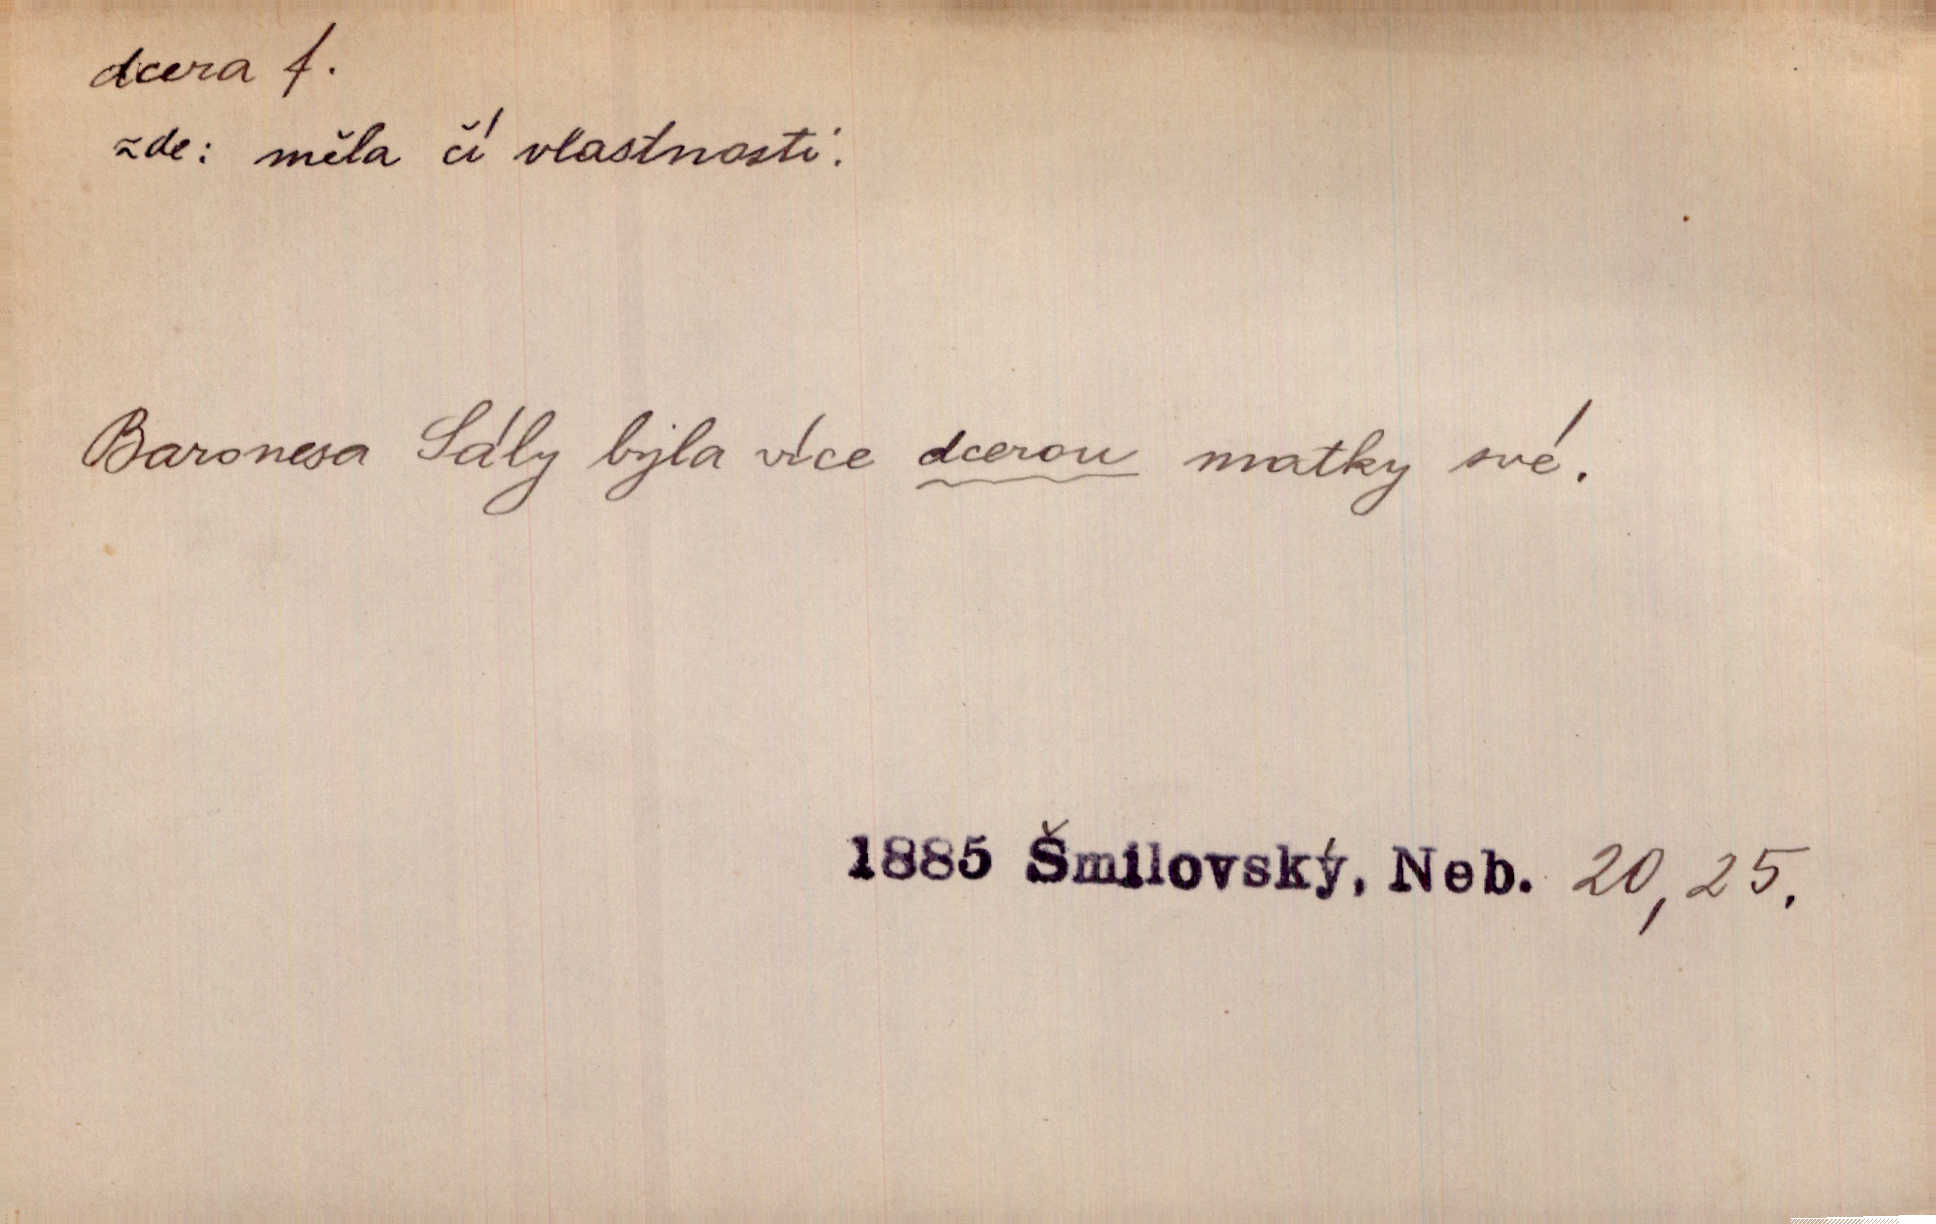 dcera f.
zde: měla čí vlastnosti.
Baronesa Sály byla více dcerou matky své.
1885 Šmilovský, Neb. 20, 25.